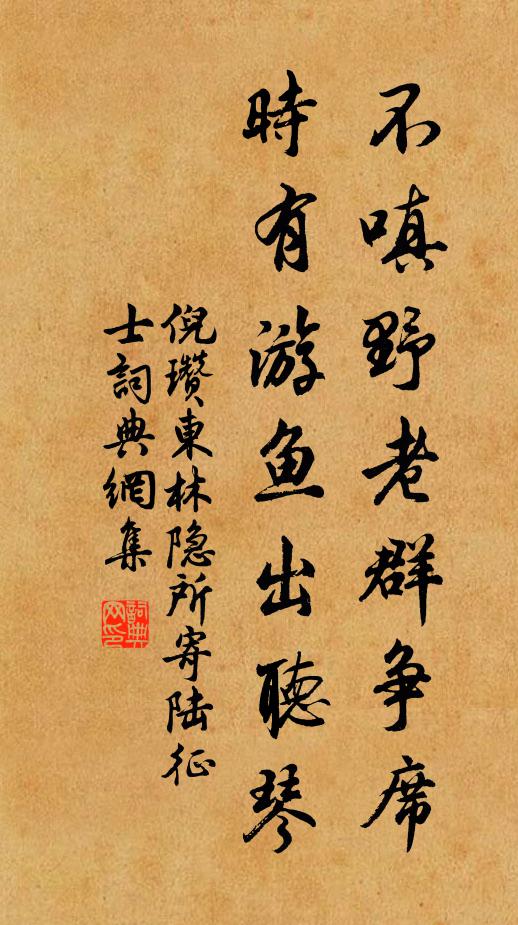 不嗔野老群争席
時有游鱼出聽琴
倪瓚東林隐所寄陆征
士詞典網集
詞典网印